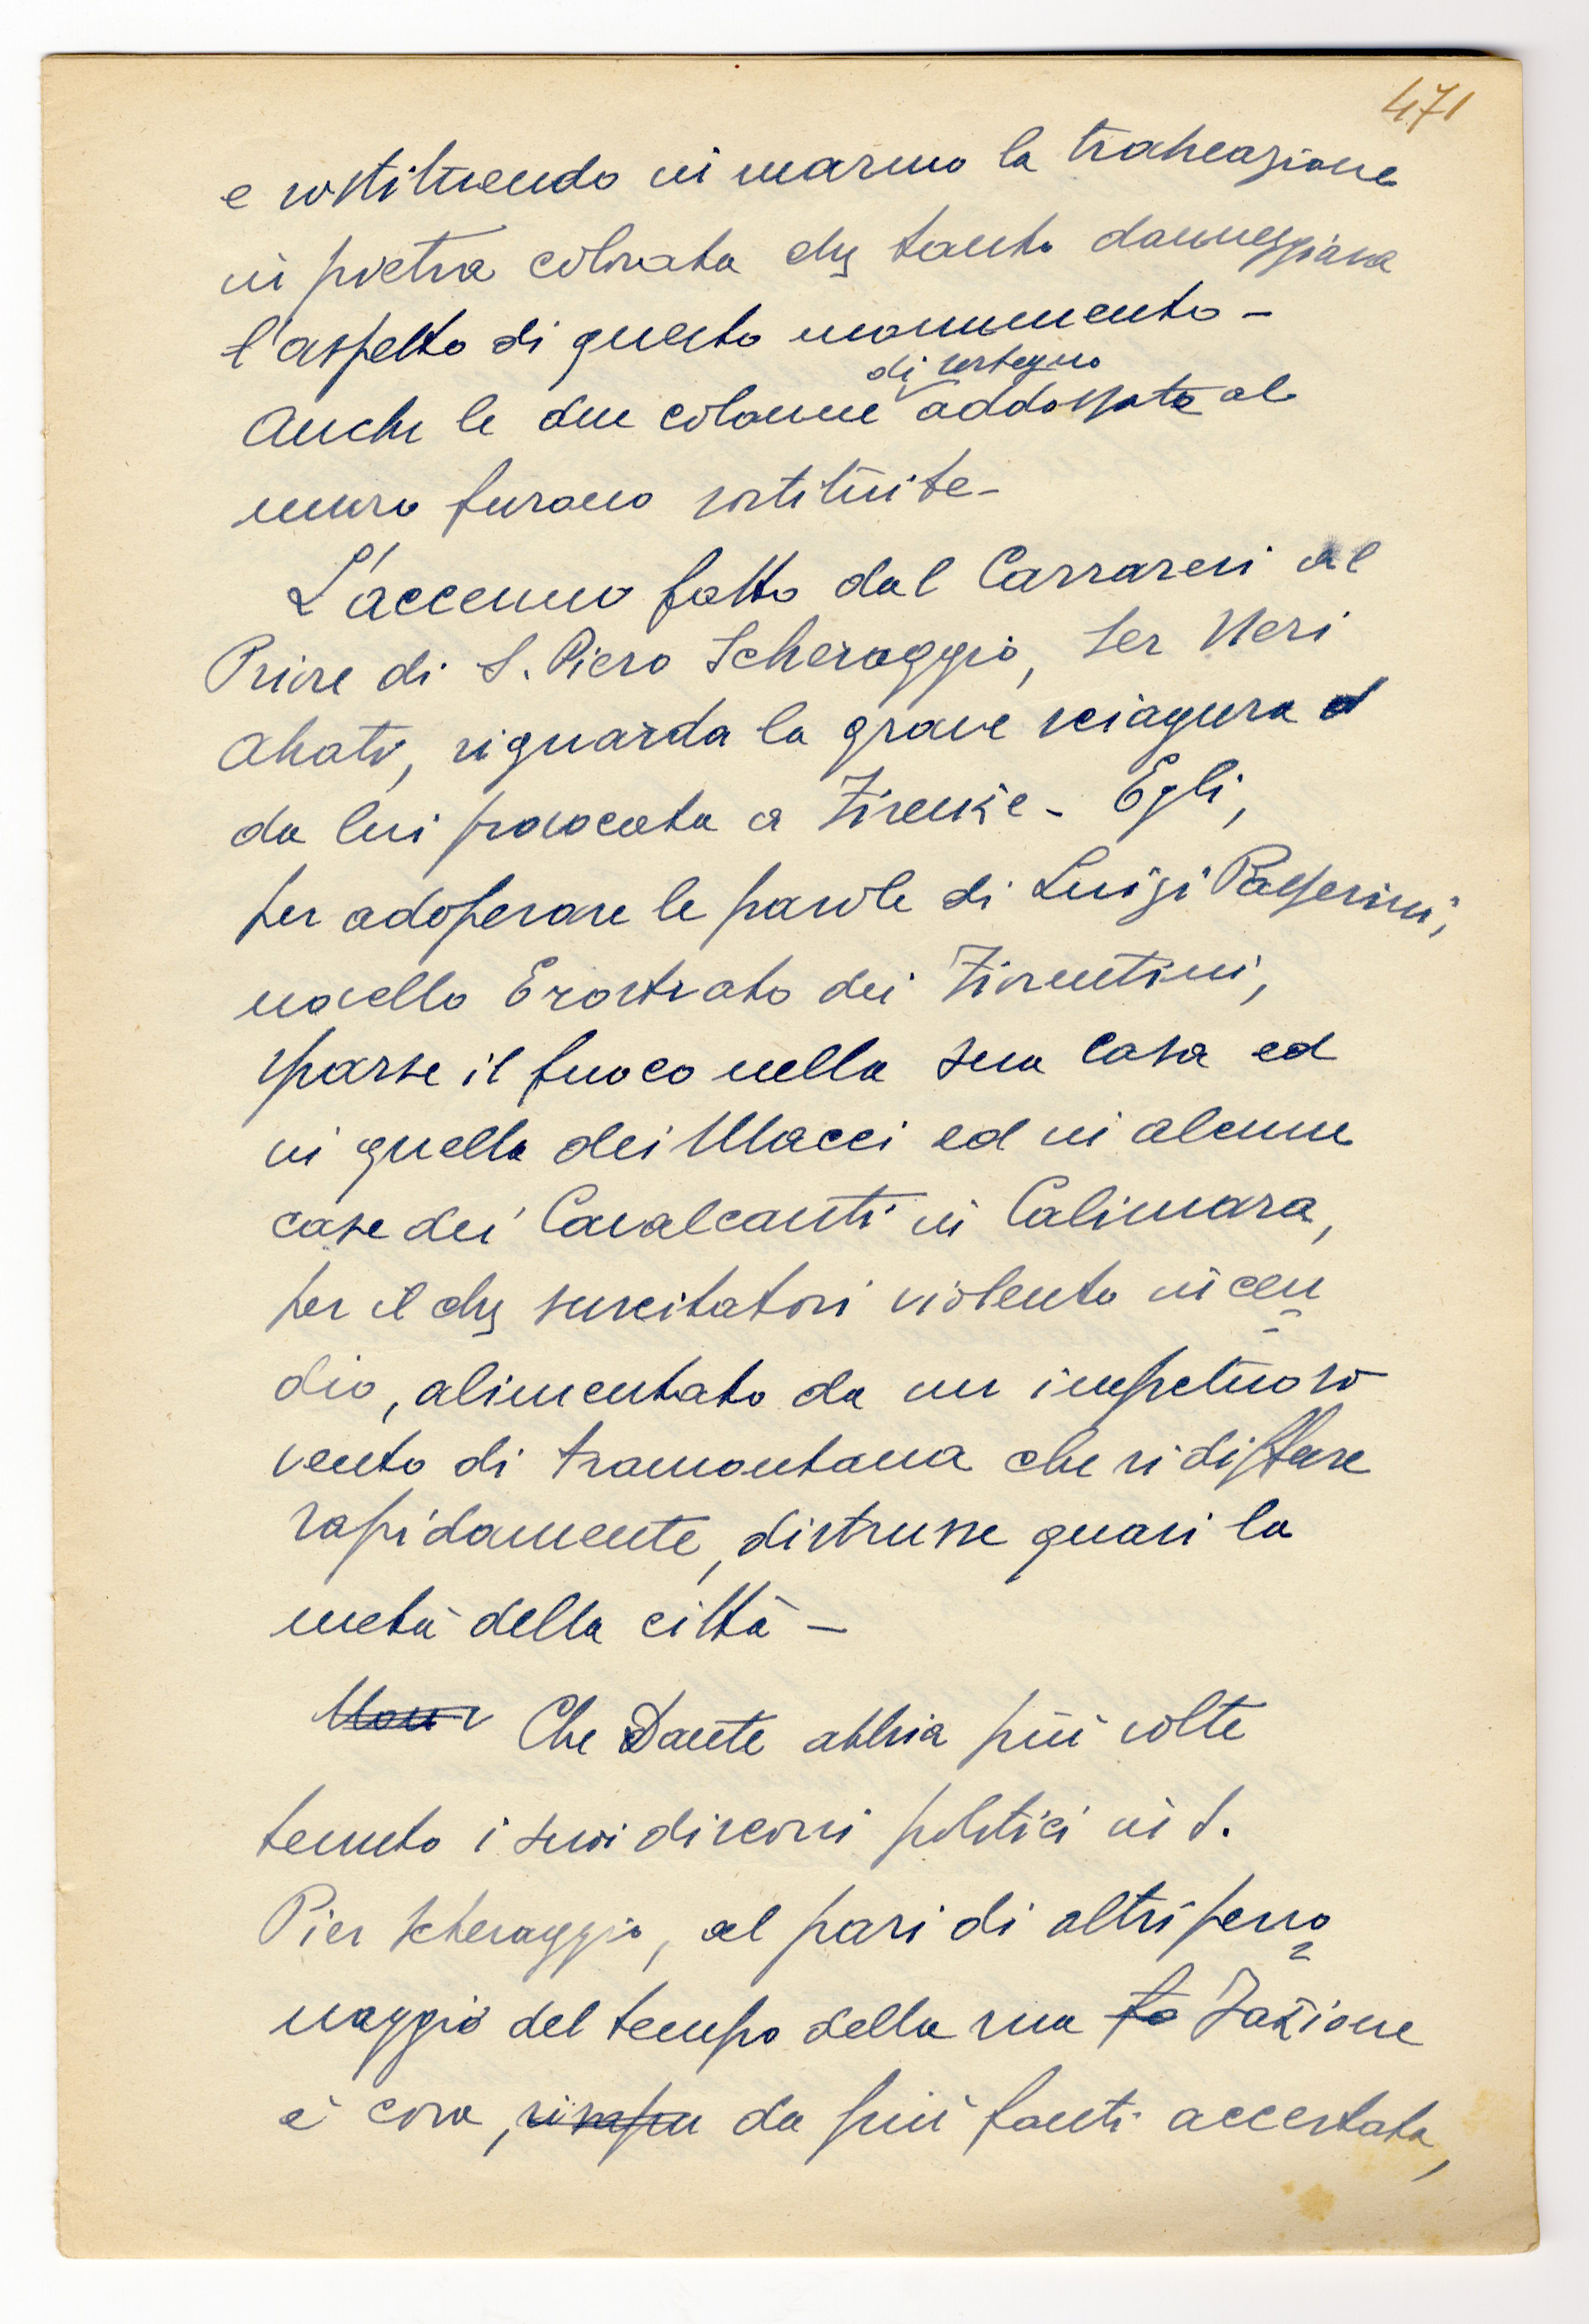 471
e sostituendo in marmo la trabeazione
in pietra colorata che tanto danneggiava
l'aspetto di questo monumento -
di sostegno
Anche le due colonne addossate al
muro furono sostituite -
L'accenno fatto dal Carraresi al
Priore di S. Piero Scheraggio, Ser Neri
Abati, riguarda la grave sciagura
da lui provocata a Firenze - Egli,
per adoperare le parole di Luigi Passerini,
novello Erostrato dei Fiorentini,
sparse il fuoco nella sua casa ed
in quella dei Macci ed in alcune
case dei Cavalcanti in Calimara,
per il che suscitatosi violento incen
dio, alimentato da un impetuoso
vento di tramontana che si diffuse
rapidamente, distrusse quasi la
metà della città -
Che Dante abbia più volte
tenuto i suoi discorsi politici in S.
Pier Scheraggio, al pari di altri perso
naggi del tempo della sua fa Fazione
è cosa, da più fonti accertata,